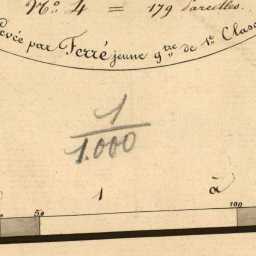 N.º 4 = 179 Parcelles.
Levée par Ferré jeune g.tre de 1.e Class
1
1.000
1 à
50 100